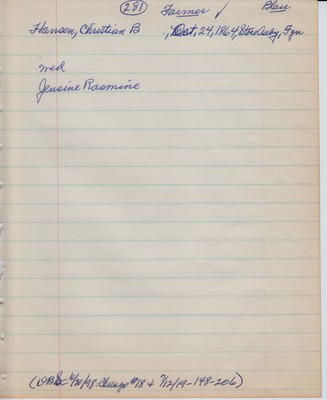 (281) Farmer ✓ Blair
Hansen, Christian B , Oct, 24, 1864, Fyn
med
Jensine Rasmine
6/21/98-Chicago #18 + 7/12/19-148-206)